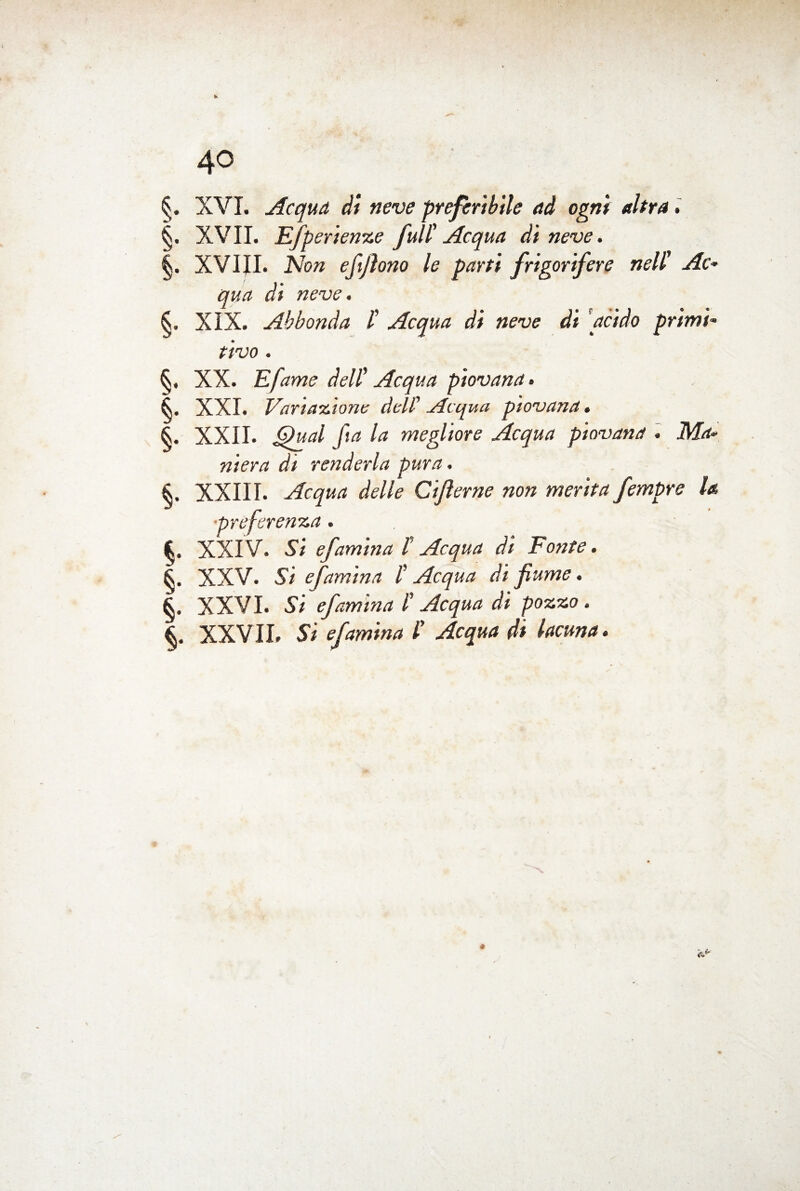 40
§. XVI. Acqua di neve preferibile ad ogni altra.
§. XVII. Eſperienze ſull' Acqua di neve.
§. XVIII. Non eſiſtono le parti frigorifere nell' Ac-
qua di neve.
§. XIX. Abbonda l' Acqua di neve di acido primi-
tivo.
§. XX. Eſame dell' Acqua piovana.
§. XXI. Variazione dell' Acqua piovana.
§. XXII. Qual ſia la megliore Acqua piovana. Ma-
niera di renderla pura.
§. XXIII. Acqua delle Ciſterne non merita ſempre la
preferenza.
§. XXIV. Si eſamina l' Acqua di Fonte.
§. XXV. Si eſamina l' Acqua di fiume.
§. XXVI. Si eſamina l' Acqua di pozzo.
§. XXVII. Si eſamina l' Acqua di lacuna.